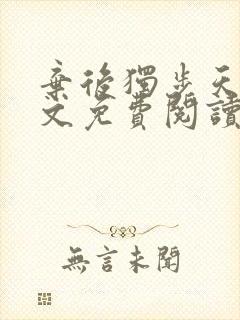 棄後獨步天
文免費閱讀
無言未聞